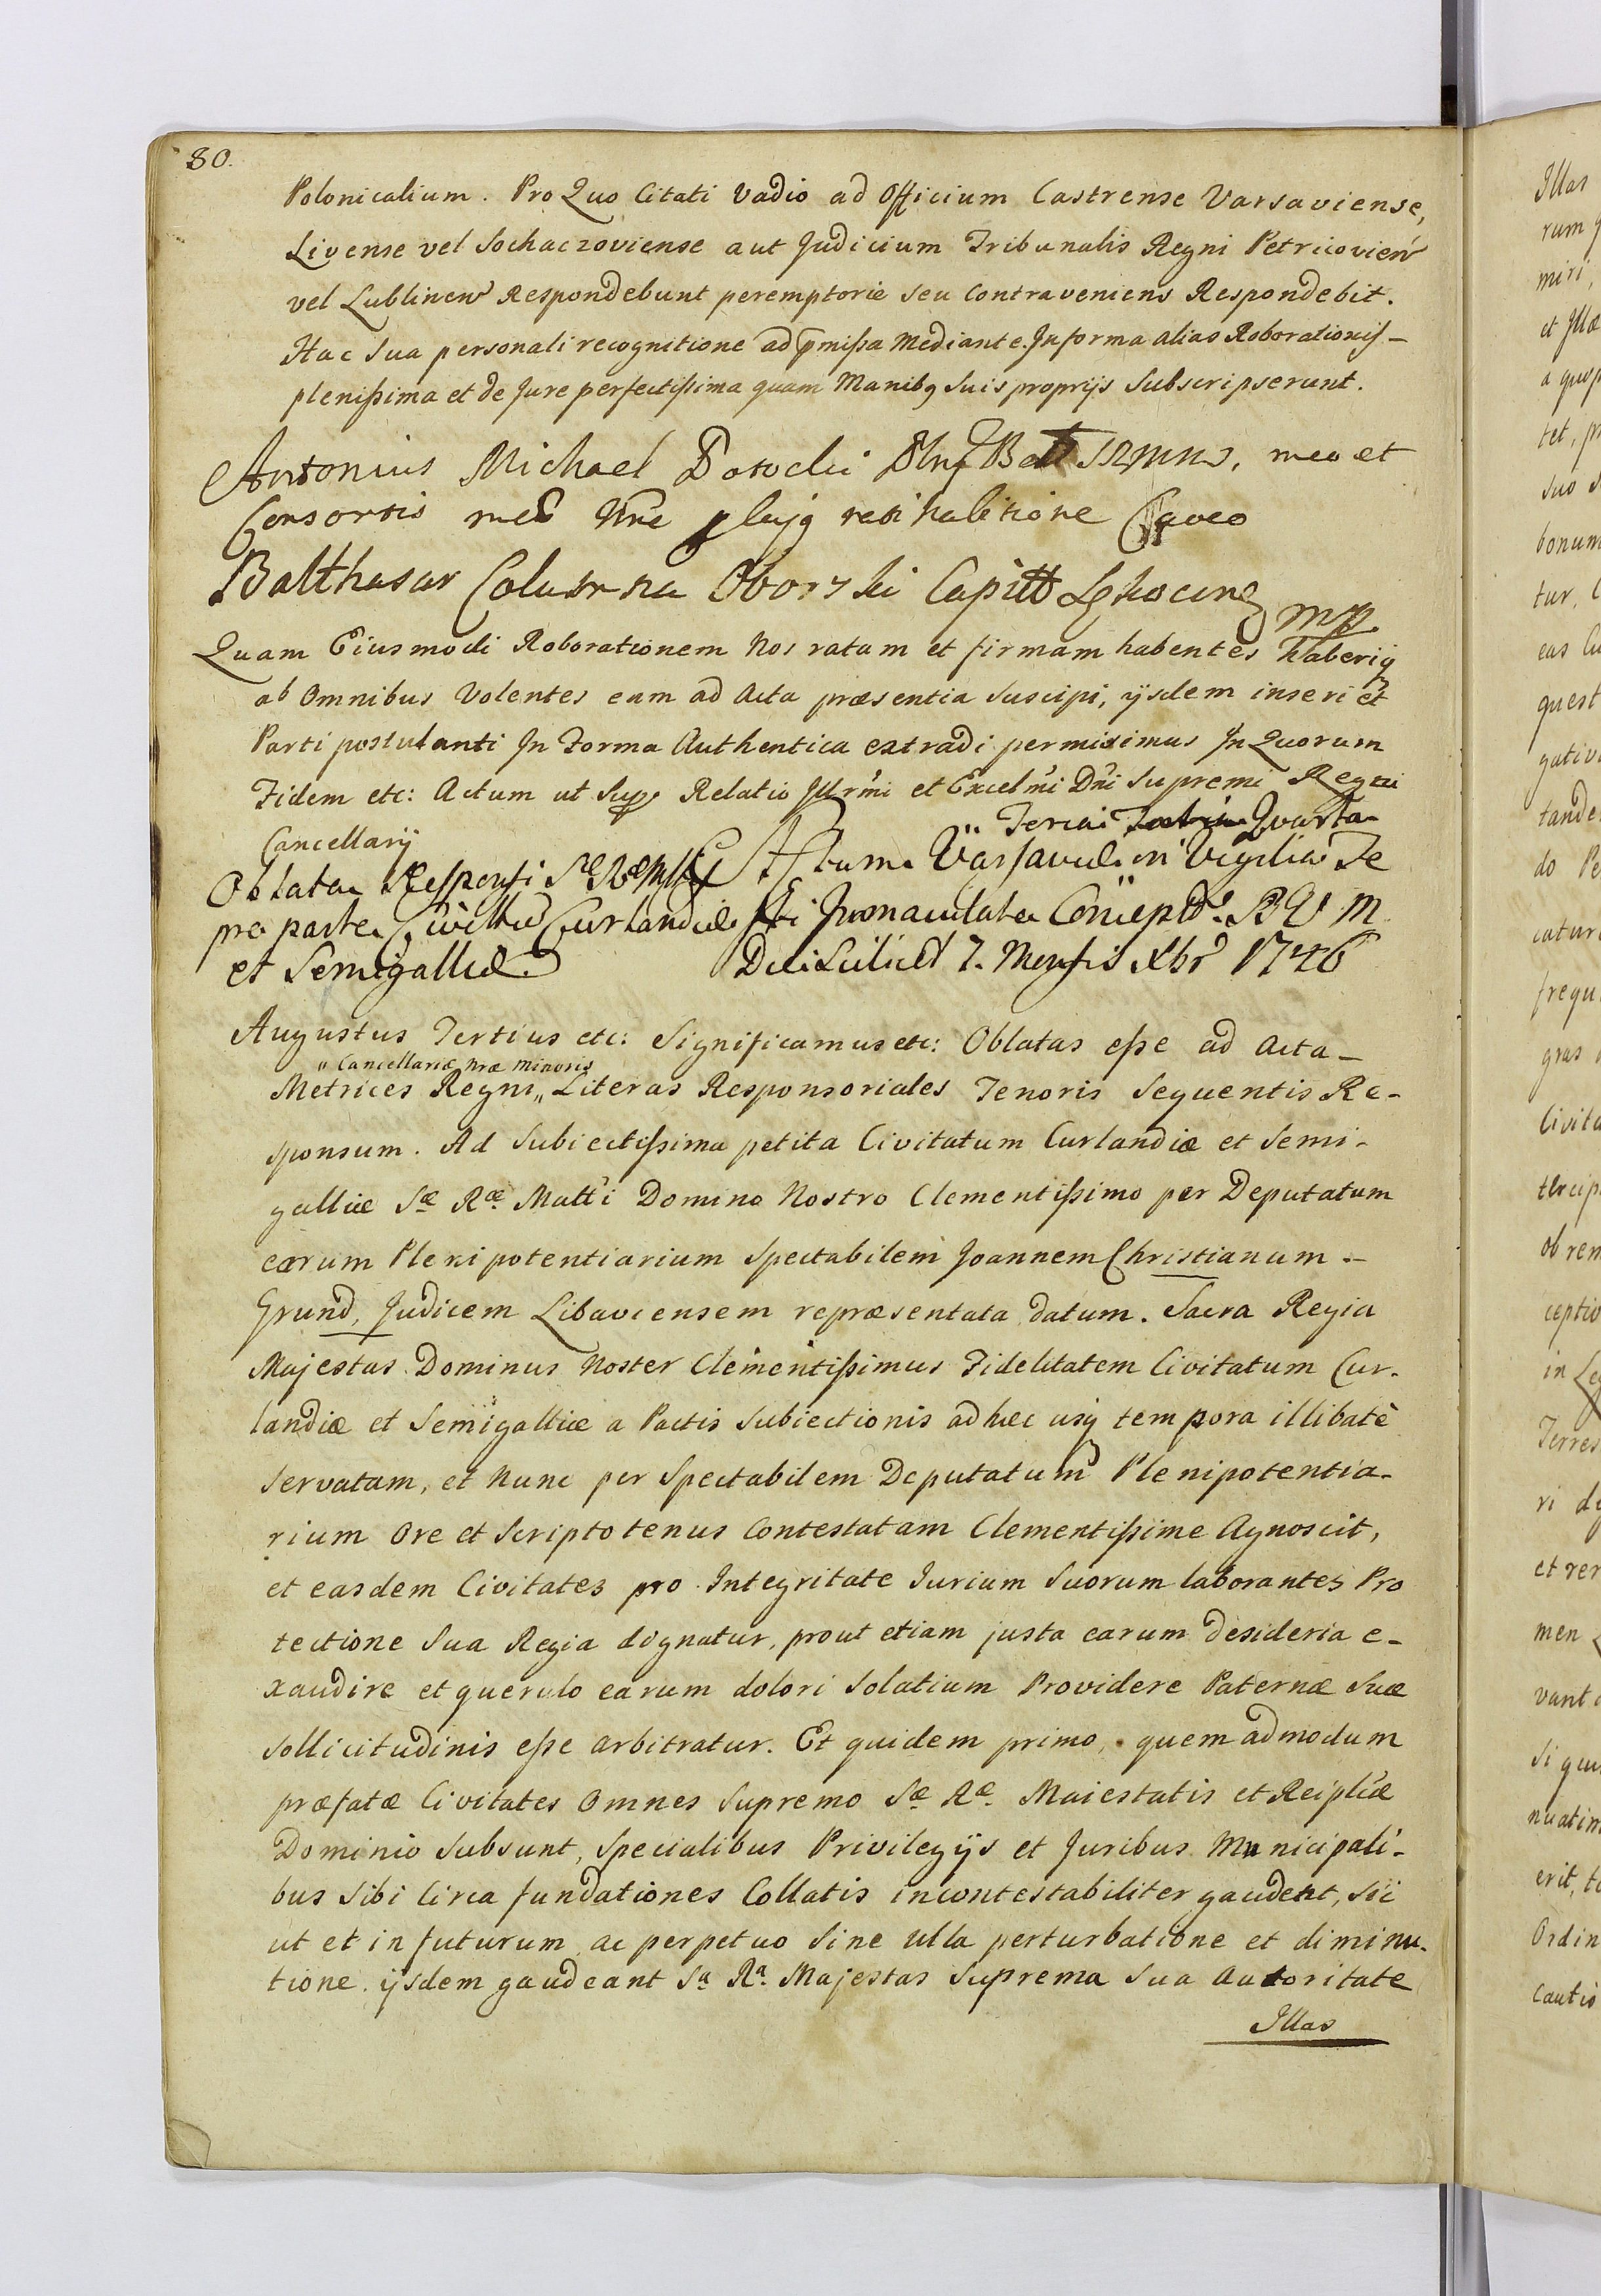 80.
Polonicalium. Pro Quo Citati Vadio ad Officium Castrense Varsaviense,
Livense vel Sochaczoviense aut Judicium Tribunalis Regni Petricovien
vel Lublinen Respondebunt peremptorie seu Contraveniens Respondebit.
Hac Sua personali recognitione ad pmißa Mediante. In forma alias Roborationis –
plenißima et de Jure perfectißima quam Manibq Suis proprijs Subscripserunt.
Antonius Michael Potocki meo et
Consortis meo Nne ratihabitione Caveo
Balthasar Columna Oborski Capitt
mp.
Quam Eiusmodi Roborationem Nos ratam et firmam habentes haberiq
ab Omnibus Volentes eam ad Acta præsentia Suscipi, ijsdem inseri et
Parti postulanti In Forma Authentica extradi permisimus In Quorum
Fidem etc: Actum ut Sup Relatio Illrmi et Excelmi Dni Supremi Regni
Cancellarij
Feria Quarta
Oblata Responsi Sæ Ræ
pro parte Civittu Curlandiæ
et Semigalliæ
Actum Varsaviæ in Vigilia Fe
sti Immaculatæ Concept B V M
Die Scilicet 7. Mensis Xbr 1746
Augustus Tertius etc: Significamus etc: Oblatas eße ad Acta –
" Cancellariæ Nræ Minoris
Metrices Regni „ Literas Responsoriales Tenoris Sequentis Re-
sponsum. Ad Subiectißima petita Civitatum Curlandiæ et Semi-
galliæ Sæ Ræ Matti Domino Nostro Clementißimo per Deputatum
earum Plenipotentiarium Spectabilem Joannem Christianum –
Grund, Judicem Libaviensem repræsentata datum. Sacra Regia
Majestas Dominus Noster Clementißimus Fidelitatem Civitatum Cur-
landiæ et Semigalliæ a Pactis Subiectionis ad hæc usq tempora illibatè
Servatam, et Nunc per Spectabilem Deputatum Plenipotentia-
rium Ore et Scripto tenus Contestatam Clementißime Agnoscit,
et easdem Civitates pro Integritate Jurium Suorum laborantes Pro
tectione Sua Regia dignatur, prout etiam justa earum desideria e-
xaudire et querulo earum dolori Solatium Providere Paternæ Suæ
Sollicitudinis eße arbitratur. Et quidem primo, quem admodum
præfatæ Civitates Omnes Supremo Sæ Ræ Maiestatis et Reiplicæ
Dominio Subsunt, Specialibus Privilegijs et Juribus Municipali-
bus Sibi Circa fundationes Collatis incontestabiliter gaudent, Sic
ut et in futurum ac perpetuo Sine Ulla perturbatione et diminu-
tione ijsdem gaudeant Sa Ra Majestas Suprema Sua Autoritate
Illas